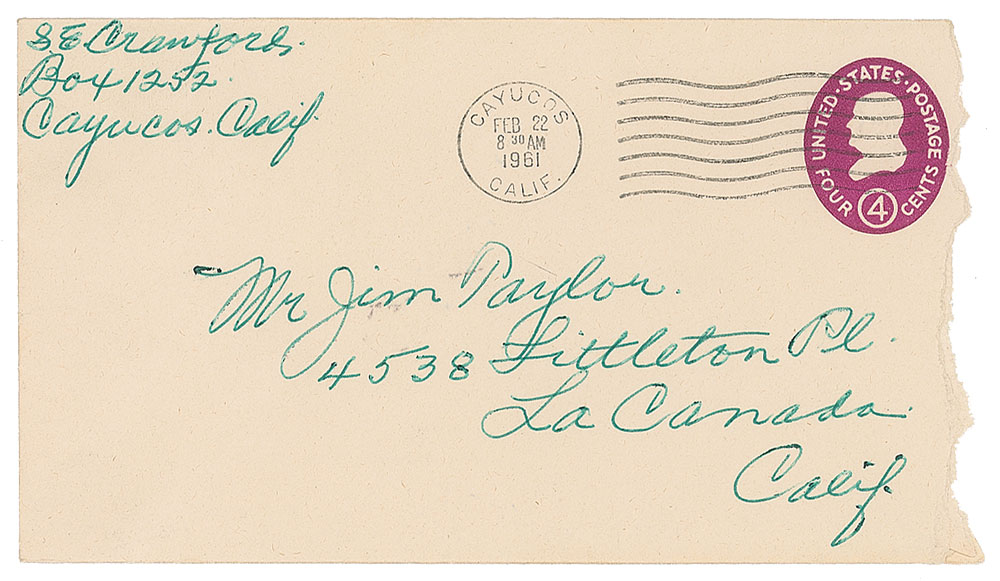 S E Crawford.
Box 1252.
Cayucos. Calif.
CAYUCOS
FEB 22
8 30 AM
1961
CALIF.
UNITED·STATES·POSTAGE
FOUR 4 CENTS
Mr Jim Taylor.
4538 Littleton Pl.
La Canada.
Calif.